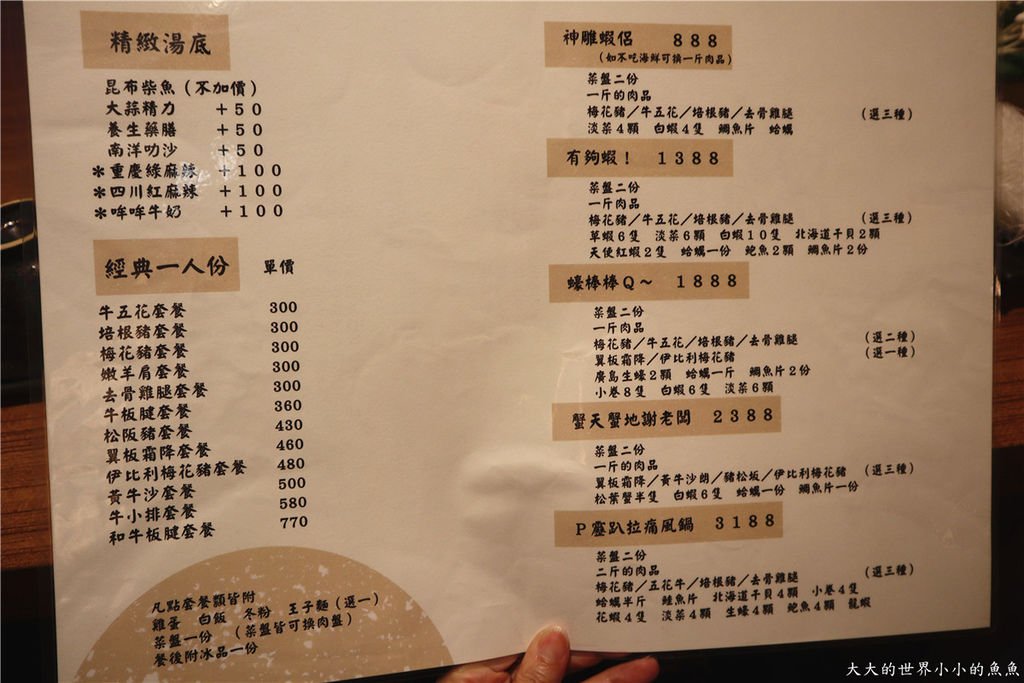 精緻湯底
昆布柴魚(不加價)
大蒜精力 +50
養生藥膳 +50
南洋叻沙 +50
*重慶綠麻辣 +100
*四川紅麻辣 +100
*哞哞牛奶 +100
經典一人份 單價
牛五花套餐 300
培根豬套餐 300
梅花豬套餐 300
嫩羊肩套餐 300
去骨雞腿套餐 300
牛板腱套餐 360
松阪豬套餐 430
翼板霜降套餐 460
伊比利梅花豬套餐 480
黃牛沙套餐 500
牛小排套餐 580
和牛板腱套餐 770
凡點套餐類皆附
雞蛋 白飯 冬粉 王子麵(選一)
菜盤一份 (菜盤皆可換肉盤)
餐後附冰品一份
神雕蝦侶 888
(如不吃海鮮可換一斤肉品)
菜盤二份
一斤的肉品
梅花豬/牛五花/培根豬/去骨雞腿 (選三種)
淡菜4顆 白蝦4隻 鯛魚片 蛤蠣
有夠蝦! 1388
菜盤二份
一斤肉品
梅花豬/牛五花/培根豬/去骨雞腿 (選三種)
草蝦6隻 淡菜6顆 白蝦10隻 北海道干貝2顆
天使紅蝦2隻 蛤蠣一份 鮑魚2顆 鯛魚片2份
蠔棒棒Q~ 1888
菜盤二份
一斤肉品
梅花豬/牛五花/培根豬/去骨雞腿 (選二種)
翼板霜降/伊比利梅花豬 (選一種)
廣島生蠔2顆 蛤蠣一斤 鯛魚片2份
小卷8隻 白蝦6隻 淡菜6顆
蟹天蟹地謝老闆 2388
菜盤二份
一斤的肉品
翼板霜降/黃牛沙朗/豬松坂/伊比利梅花豬 (選三種)
松葉蟹半隻 白蝦6隻 蛤蠣一份 鯛魚片一份
P靂趴拉痛風鍋 3188
菜盤二份
二斤的肉品
梅花豬/五花牛/培根豬/去骨雞腿 (選三種)
蛤蠣半斤 鮭魚片 北海道干貝4顆 小卷4隻
花蝦4隻 淡菜4顆 生蠔4顆 鮑魚4顆 龍蝦
大大的世界小小的魚魚